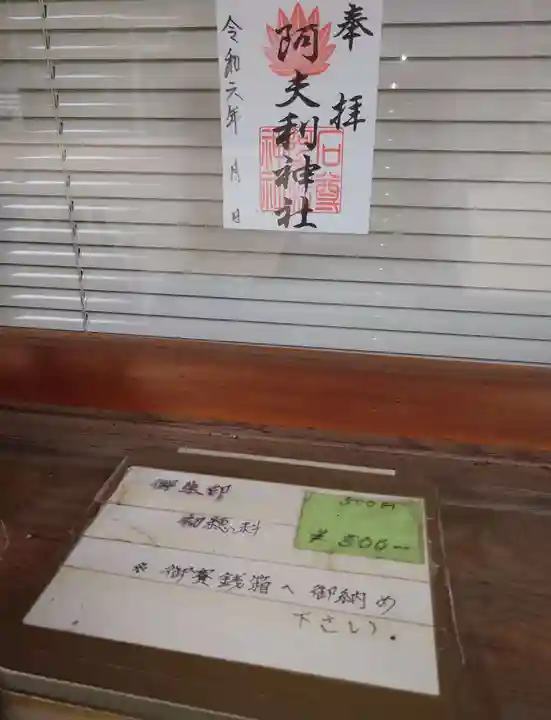 奉拝
阿夫利神社
令和元年 月 日
御朱印
初穂料
300円
¥300-
*御賽銭箱へ御納め
下さい.